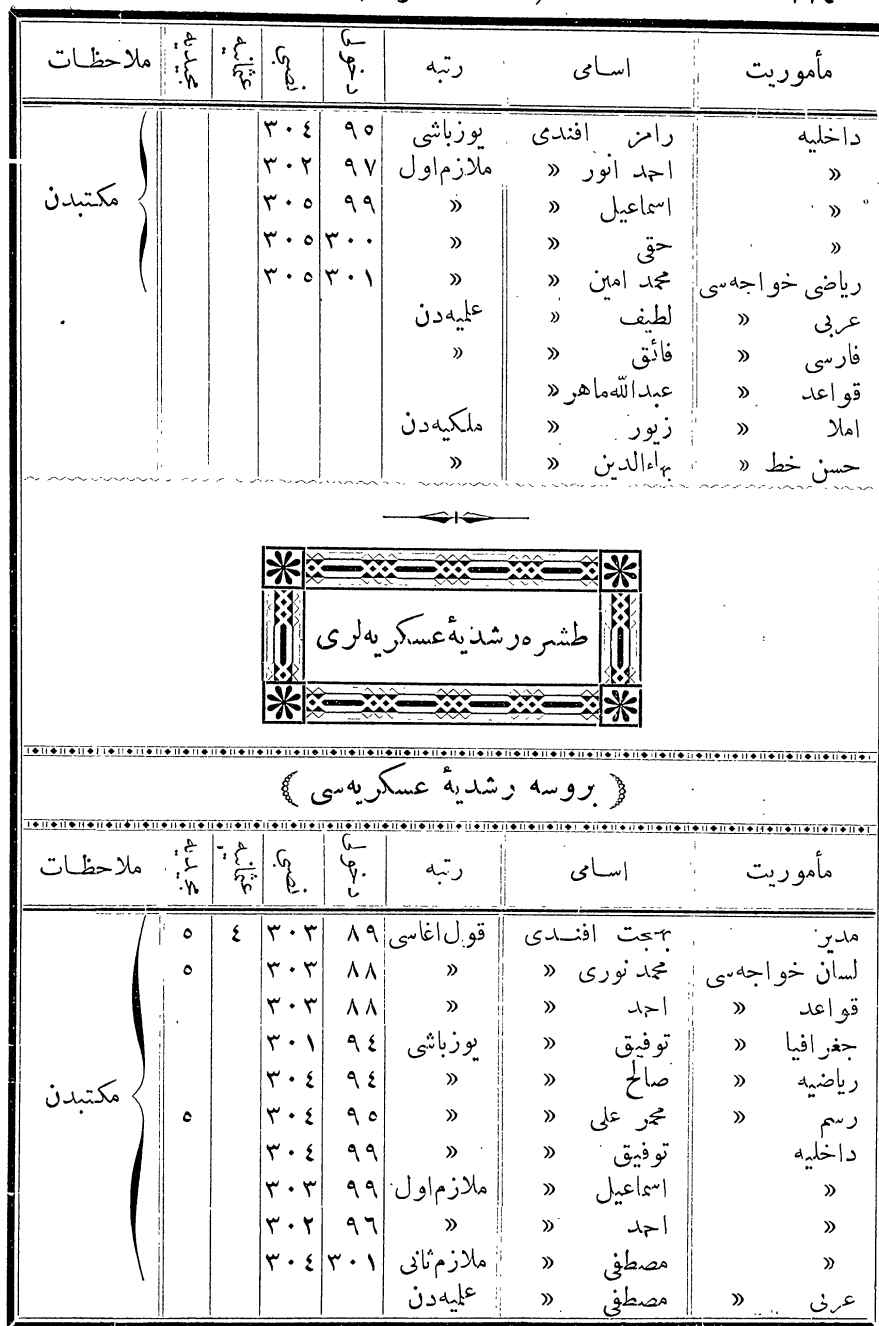 مأموريت اسامى رتبه دخولى نصبى عثمانيه مجيديه ملاحظات
داخليه رامز افندى يوزباشى ٩٥ ٣٠٤
« احمد انور « ملازم اول ٩٧ ٣٠٢
« اسماعيل « « ٩٩ ٣٠٥
« حقى « « ٣٠٠ ٣٠٥
رياضى خواجه‌سى محمد امين « « ٣٠١ ٣٠٥
مكتبدن
عربى « لطيف « علميه‌دن
فارسى « فائق « «
قواعد « عبدالله ماهر «
املا « زيور « ملكيه‌دن
حسن خط « بهاءالدين « «
طشره رشديهٔ عسكريه‌لرى
﴿ بروسه رشديهٔ عسكريه‌سى ﴾
مأموريت اسامى رتبه دخولى نصبى عثمانيه مجيديه ملاحظات
مدير بهجت افندى قول اغاسى ٨٩ ٣٠٣ ٤ ٥
لسان خواجه‌سى محمد نورى « « ٨٨ ٣٠٣ ٥
قواعد « احمد « « ٨٨ ٣٠٣
جغرافيا « توفيق « يوزباشى ٩٤ ٣٠١
رياضيه « صالح « « ٩٤ ٣٠٤
رسم « محمد على « « ٩٥ ٣٠٤ ٥
داخليه توفيق « « ٩٩ ٣٠٤
« اسماعيل « ملازم اول ٩٩ ٣٠٣
« احمد « « ٩٦ ٣٠٢
« مصطفى « ملازم ثانى ٣٠١ ٣٠٤
مكتبدن
عربى « مصطفى « علميه‌دن